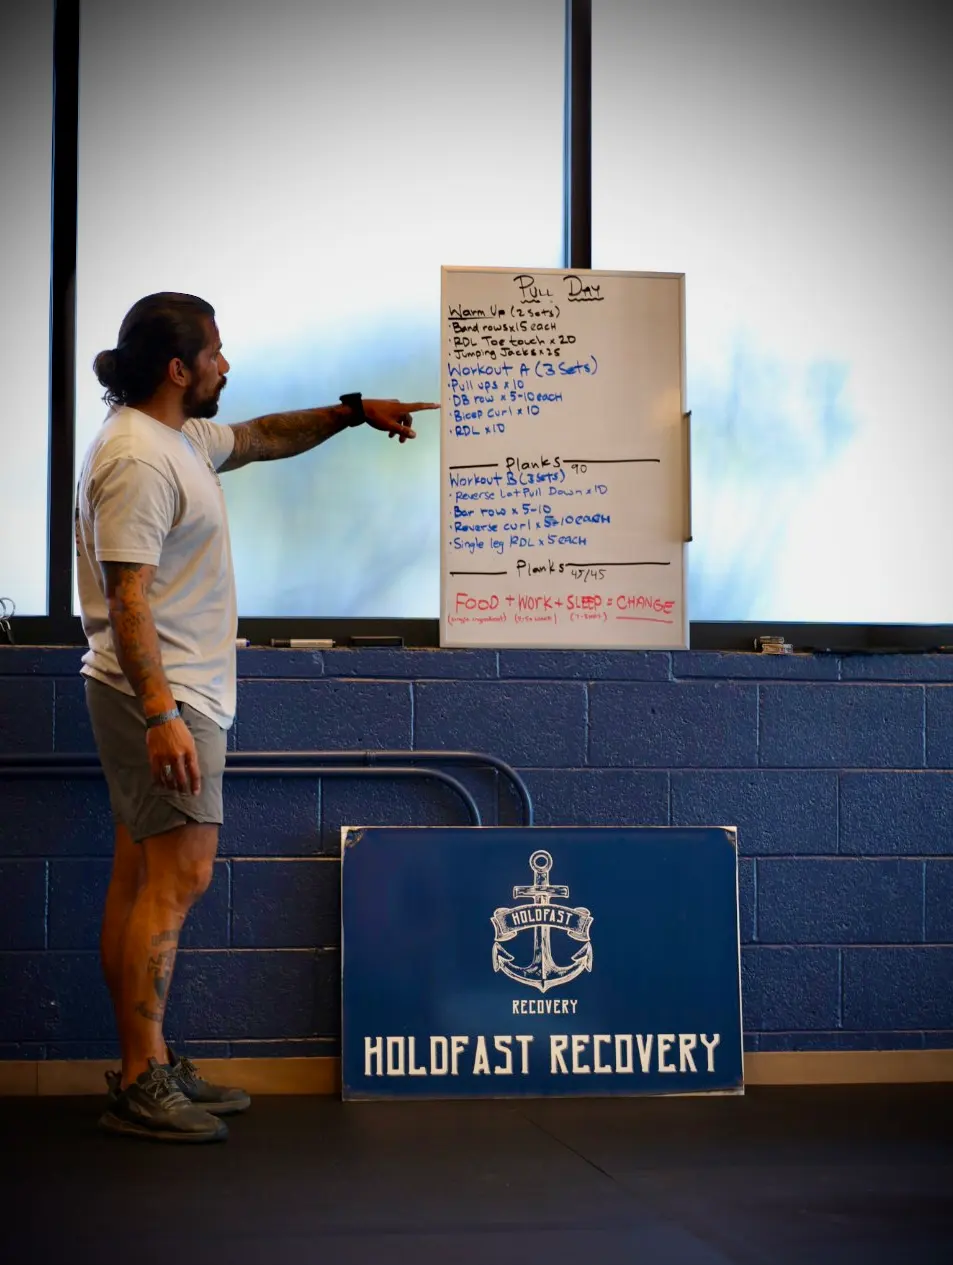 PULL DAY
Warm Up (2 Sets)
· Band rows x 15 each
· RDL Toe touch x 20
· Jumping Jacks x 25
Workout A (3 Sets)
· Pull ups x 10
· DB row x 5-10 each
· Bicep curl x 10
· RDL x 10
Planks 90
Workout B (3 Sets)
· Reverse Lat Pull Down x 10
· Bar row x 5-10
· Reverse curl x 5-10 each
· Single leg RDL x 5 each
Planks 45/45
FOOD + WORK + SLEEP = CHANGE
(single ingredient)
HOLDFAST
RECOVERY
HOLDFAST RECOVERY